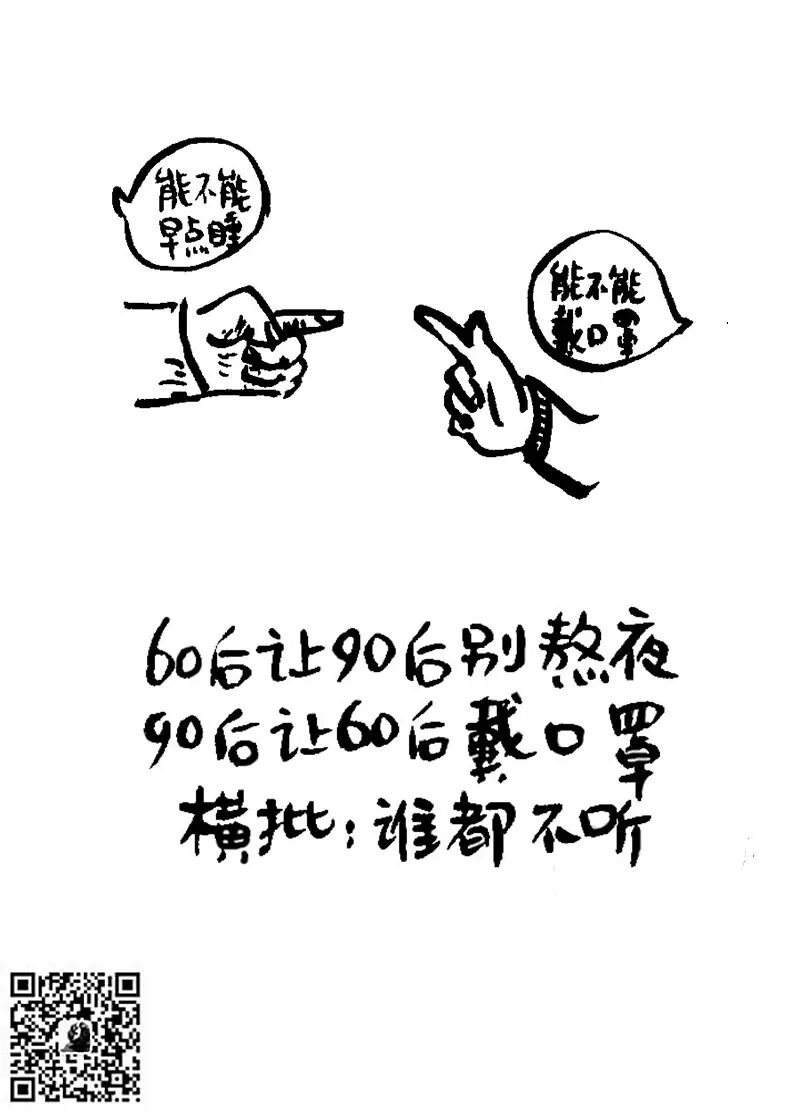 能不能
早点睡
能不能
戴口罩
60后让90后别熬夜
90后让60后戴口罩
横批：谁都不听